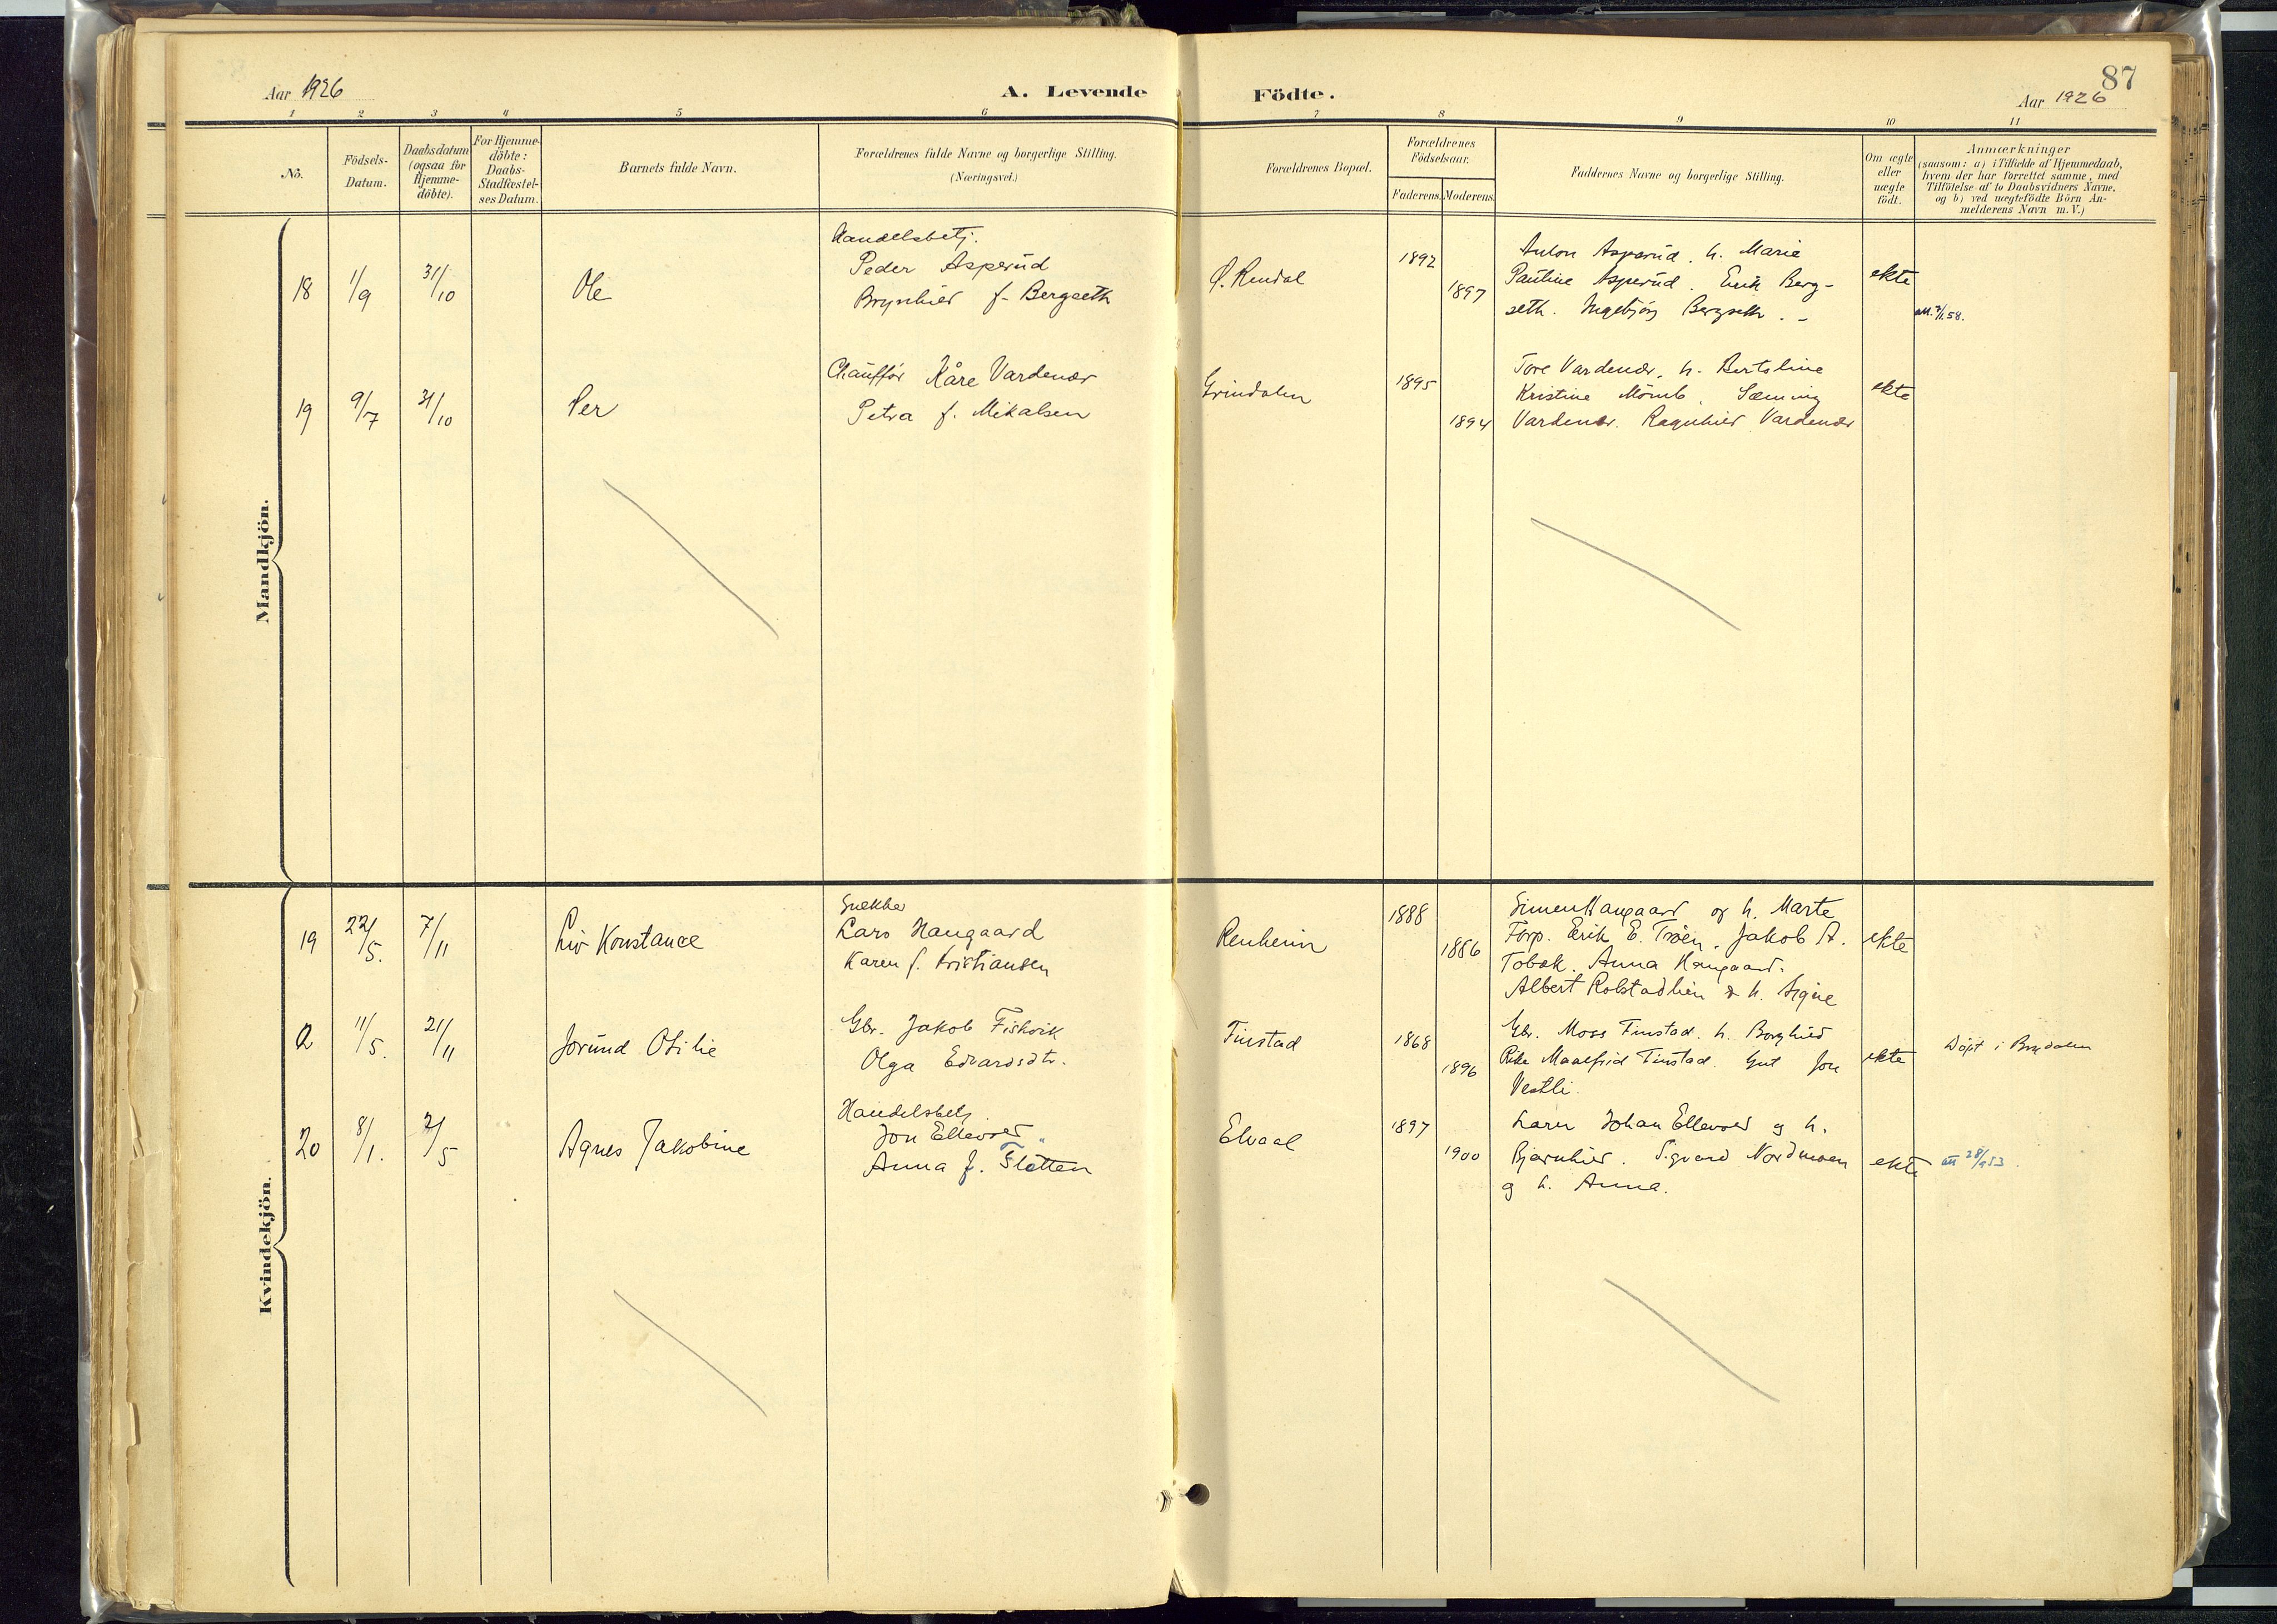 87
Aar 1926
A. Levende Födte.
Aar 1926
1 2 3 4 5 6 7 8 9 10 11
No.
Födsels-Datum.
Daabsdatum (ogsaa for Hjemme-döbte).
For Hjemme-döbte: Daabs-Stadfæstel-ses Datum.
Barnets fulde Navn.
Forældrenes fulde Navne og borgerlige Stilling.
(Næringsvei.)
Forældrenes Bopæl.
Forældrenes Födselsaar.
Faderens. Moderens.
Faddernes Navne og borgerlige Stilling.
Om ægte eller uægte födt.
Anmærkninger
(saasom: a) i Tilfælde af Hjemmedaab,
hvem der har forrettet samme, med
Tilföielse af to Daabsvidners Navne,
og b) ved uægtefödte Börn An-
melderens Navn m.V.)
Mandkjön.
Handelsbetj.
18 1/9 31/10 Ole
Peder Asperud
Brynhild f. Bergseth
Ø. Rendal
1892
1897
Anton Asperud. h. Marie
Pauline Asperud. Erik Berg-
seth. Ingebjörg Bergseth. -
ekte
19 9/7 31/10 Per
Chaufför Kåre Vardenær
Petra f. Mikalsen
Grindalen
1895
1894
Tore Vardenær. h. Bertoline
Kristine Mömb. Sæming
Vardenær. Ragnhild Vardenær
ekte
Kvindekjön.
19 22/5. 7/11 Liv Konstance
Snekker
Lars Haugaard
Karen f. Kristiansen
Renheim
1888
1886
Simen Haugaard og h. Marte
Forp. Erik E. Tröen. Jakob A.
Tobæk. Anna Haugaard.
Albert Rolstadlien & h. Signe
ekte
Q 11/5. 21/11 Jorund Otilie
Gbr. Jakob Fiskvik
Olga Edvardsdtr.
Finstad
1868
1896
Gbr. Moss Finstad. h. Borghild
Maalfrid Finstad. Gut Jon
Vestli.
ekte
Döpt i
20 8/1. 2/5 Agnes Jakobine
Handelsbetj.
Jon Ellevold
Anna f. Slåtten
Elvaal
1897
1900
Johan Ellevold og h.
Bjarnhild. Sigvard Nordmoen
og h. Anna.
ekte
att 28/9 53.